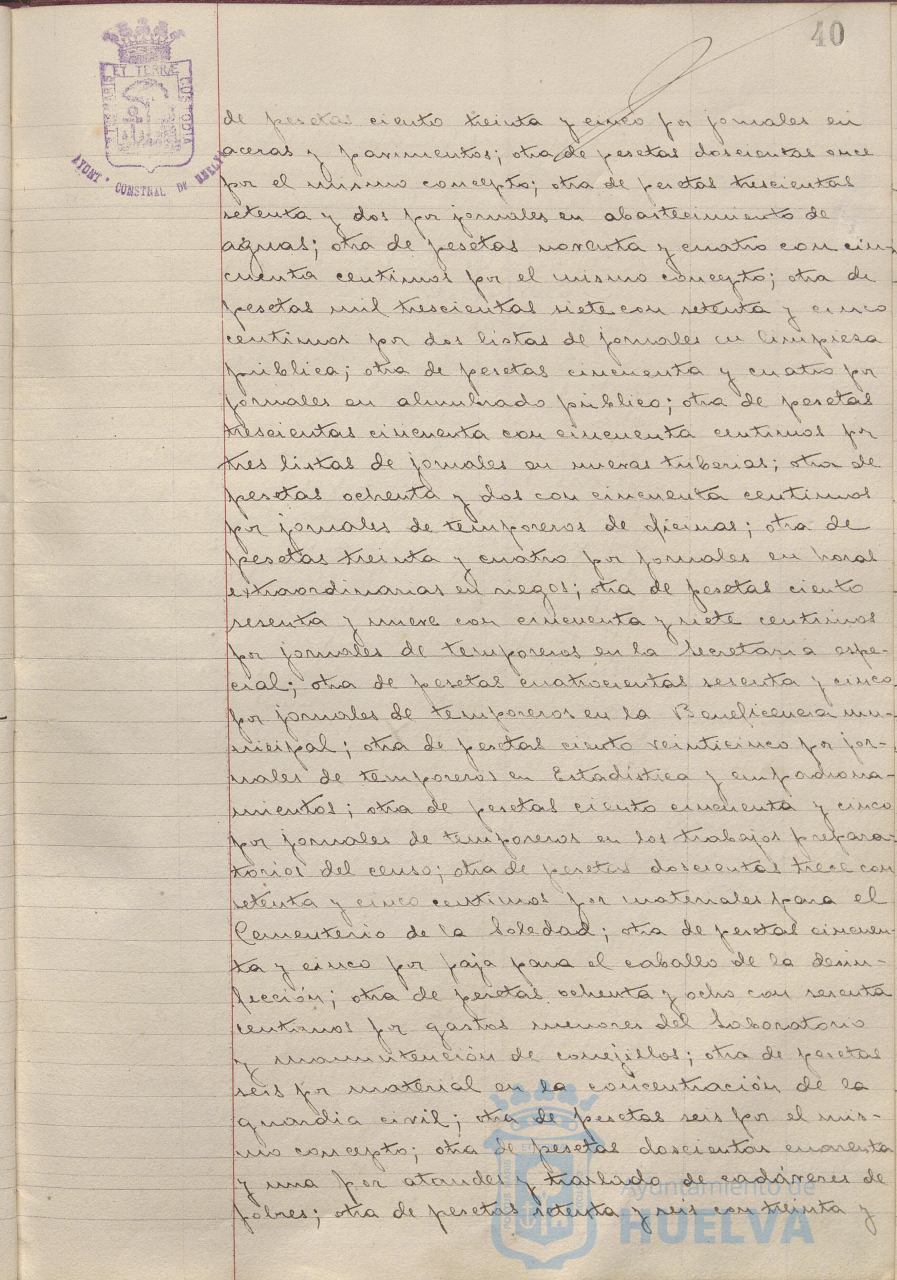 40
PORTUS MARIS ET TERRÆ CUSTODIA
AYUNT. CONSTNAL. DE HUELVA
de pesetas ciento treinta y cinco por jornales en
aceras y pavimentos; otra de pesetas doscientas once
por el mismo concepto; otra de pesetas trescientas
setenta y dos por jornales en abastecimiento de
aguas; otra de pesetas noventa y cuatro con cin-
cuenta centimos por el mismo concepto; otra de
pesetas mil trescientas siete con setenta y cinco
centimos por dos listas de jornales en limpiesa
pública; otra de pesetas cincuenta y cuatro por
jornales en alumbrado público; otra de pesetas
trescientas cincuenta con cincuenta centimos por
tres listas de jornales en nuevas tuberias; otra de
pesetas ochenta y dos con cincuenta centimos
por jornales de temporeros de oficinas; otra de
pesetas treinta y cuatro por jornales en horas
extraordinarias en riegos; otra de pesetas ciento
sesenta y nueve con cincuenta y siete centimos
por jornales de temporeros en la Secretaria espe-
cial; otra de pesetas cuatrocientas sesenta y cinco
por jornales de temporeros en la Beneficencia mu-
nicipal; otra de pesetas ciento veinticinco por jor-
nales de temporeros en Estadística y empadrona-
mientos; otra de pesetas ciento cincuenta y cinco
por jornales de temporeros en los trabajos prepara-
torios del censo; otra de pesetas doscientas trece con
setenta y cinco centimos por materiales para el
Cementerio de la Soledad; otra de pesetas cincuen-
ta y cinco por paja para el caballo de la desin-
fección; otra de pesetas ochenta y ocho con sesenta
centimos por gastos menores del Laboratorio
y manutención de conejillos; otra de pesetas
seis por material en la concentración de la
guardia civil; otra de pesetas seis por el mis-
mo concepto; otra de pesetas doscientas cuarenta
y una por ataudes y traslado de cadáveres de
pobres; otra de pesetas setenta y seis con treinta y
Ayuntamiento de
HUELVA